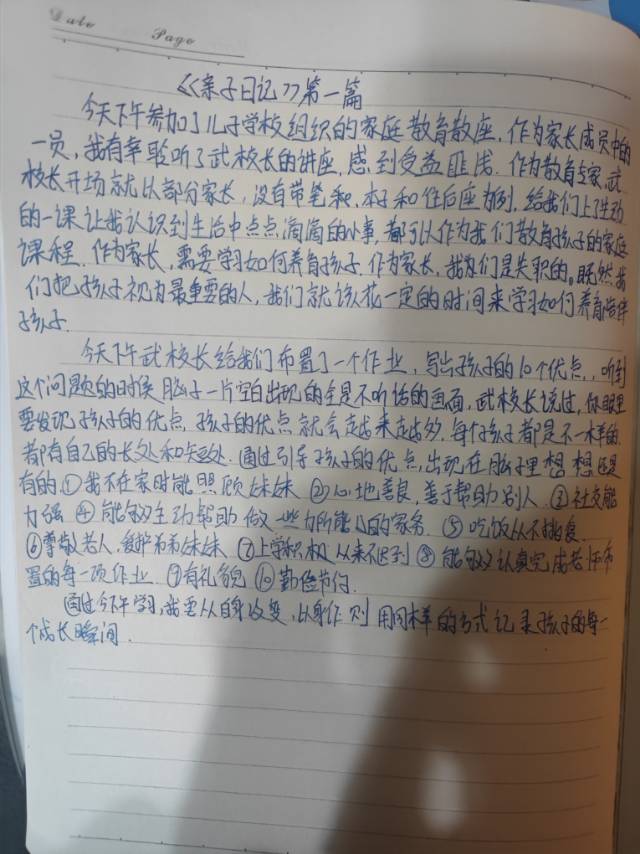 Date
Page
《亲子日记》第一篇
今天下午参加了儿子学校组织的家庭教育教座，作为家长成员中的
一员，我有幸聆听了武校长的讲座，感到受益匪浅，作为教育专家，武
校长开场就以部分家长，没有带笔和，本子和住后座为例，给我们上了生动
的一课让我认识到生活中点点滴滴的小事，都可以作为我们教育孩子的家庭
课程，作为家长，需要学习如何养育孩子，作为家长，我们是失职的。既然我
们把孩子视为最重要的人，我们就该花一定的时间来学习如何养育陪伴
孩子
今天下午武校长给我们布置了一个作业，写出孩子的10个优点，听到
这个问题的时候脑子一片空白出现的全是不听话的画面，武校长说过，你眼里
要发现孩子的优点，孩子的优点就会越来越多，每个孩子都是不一样的，
都有自己的长处和短处，通过引导孩子的优点，出现在脑子里想想还是
有的①我不在家时能照顾妹妹②心地善良，善于帮助别人③社交能
力强④能够主动帮助做一些力所能及的家务⑤吃饭从不挑食
⑥尊敬老人，爱护弟弟妹妹⑦上学积极从来不迟到⑧能够认真完成老师布
置的每一项作业⑨有礼貌⑩勤俭节约
通过今下午学习，我要从自身改变，以身作则用同样的方式记录孩子的每一
个成长瞬间